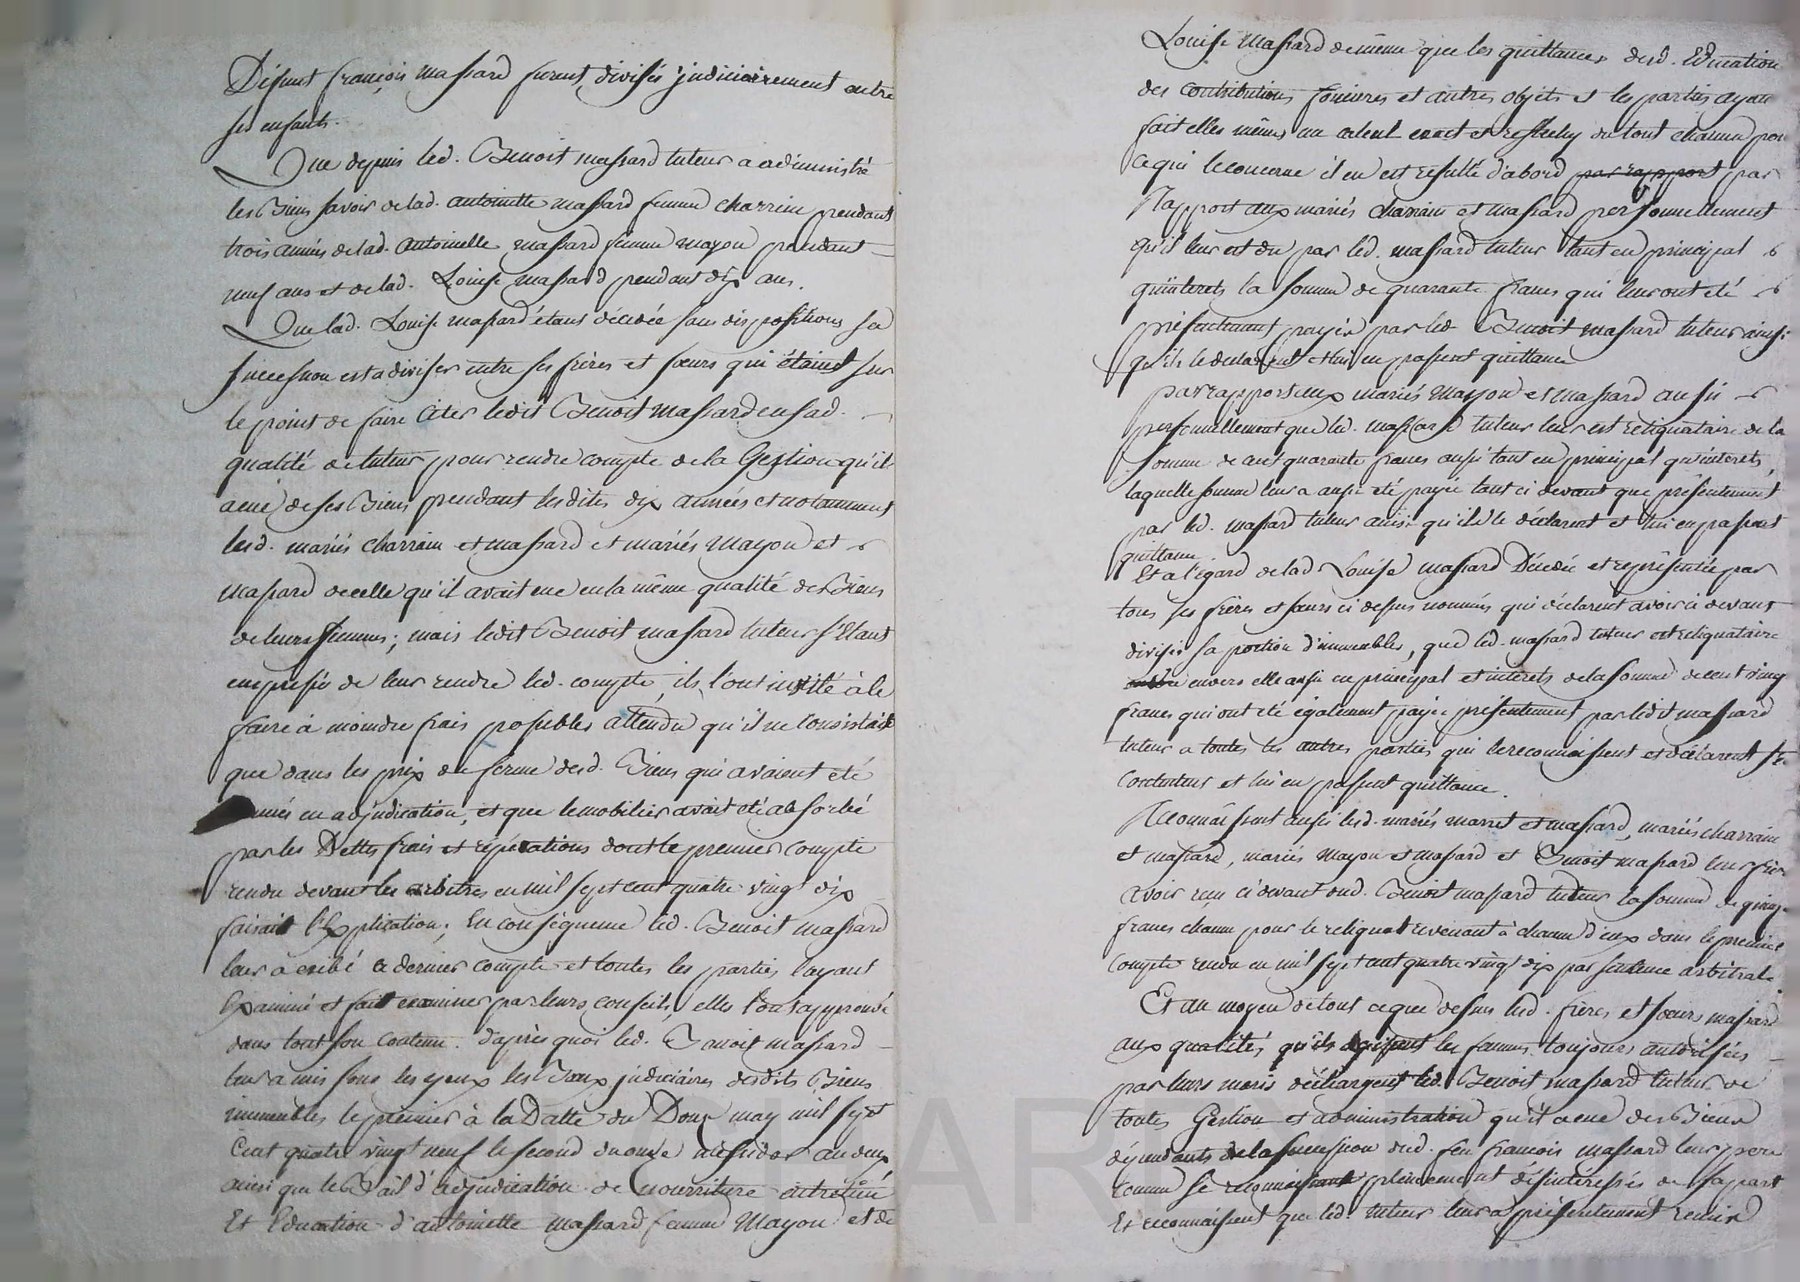 Défunt françois massard furent divisés judiciairement entre
ses enfants.
Que depuis led. Benoit massard tuteur a administré
les Biens savoir de lad. antoinette massard femme charrein pendant
trois années de lad. antoinette massard femme mayou pendant
neuf ans et de lad. Louise massard pendant dix ans.
Que lad. Louise massard étant décédée sans dispositions sa
succession est a diviser entre ses frères et sœurs qui étaient sur
le point de faire citer ledit Benoit massard en sad.
qualité de tuteur pour rendre compte de la Gestion qu'il
a eue de ses Biens pendant lesdites dix années et notamment
lesd. mariés charrein et massard et mariés mayou et
massard de celle qu'il avait eue en la même qualité des Biens
de leurs femmes; mais ledit Benoit massard tuteur s'étant
empressé de leur rendre led. compte, ils l'ont invité à le
faire à moindre frais possibles attendu qu'il ne consistait
que dans les prix de ferme desd. Biens qui avaient été
mis en adjudication, et que le mobilier avait été absorbé
par les Dettes frais et réparations dont le premier compte
rendu devant les arbitres en mil sept cent quatre vingt dix
faisait l'Explication; En conséquence led. Benoit massard
leur à exibé ce dernier compte et toutes les parties l'ayant
Examiné et fait examiner par leurs conseils, elles l'ont approuvé
dans tout son contenu. d'après quoi led. Benoit massard
leur a mis sous les yeux les Baux judiciaires desdits Biens
immeubles le premier à la Datte du Douze may mil sept
Cent quatre vingt neuf le second du onze messidor an deux
ainsi que le Bail d'adjudication de nourriture entretien
Et Education d'antoinette massard femme Mayou et de
Louise Massard de même que les quittances desd. Education
des contributions foncières et autres objets et les parties ayant
fait elles mêmes un calcul exact et du tout chacun pour
ce qui le concerne il en est résulté d'abord par rapport par
Rapport aux mariés charrein et massard personnellement
qu'il leur est du par led. massard tuteur tant en principal
qu'interets la somme de quarante francs qui leur ont été
présentement payés par led. Benoit massard tuteur ainsi
qu'ils le declarent et lui en passent quittance
par rapport aux mariés Mayou et massard aussi
personnellement que led. massard tuteur leur est reliquataire de la
somme de cent quarante francs aussi tant en principal qu'interets,
laquelle somme leur a aussi été payée tant ci devant que présentement
par led. massard tuteur ainsi qu'ils le déclarent et lui en passent
quittance.
Et a l'égard de lad Louise massard Décédée et représentée par
tous ses frères et sœurs ci dessus nommés qui déclarent avoir ci devant
divisé sa portion d'immeubles, que led. massard tuteur est reliquataire
envers elle aussi en principal et interets de la somme de cent vingt
francs qui ont été également payés présentement par ledit massard
tuteur a toutes les autres parties qui le reconnaissent et déclarent se
contenter et lui en passent quittance.
Reconnaissent aussi lesd. mariés marret et massard, mariés charrein
et massard, mariés mayou et massard et Benoit massard leur frère
avoir reçu ci devant dud. Benoit massard tuteur la somme de
francs chacun pour le reliquat revenant à chacun d'eux dans le premier
compte rendu en mil sept cent quatre vingt dix par sentence arbitrale.
Et au moyen de tout ce que dessus lesd. frères et sœurs massard
aux qualités qu'ils agissent les femmes toujours autorisées
par leurs maris déchargent led. Benoit massard tuteur de
toutes Gestion et administration qu'il a eue des Biens
dépendants de la succession dud. feu françois massard leur père
comme se reconnaissant pleinement désintéressés de sa part
Et reconnaissent que led. tuteur leur a présentement remis